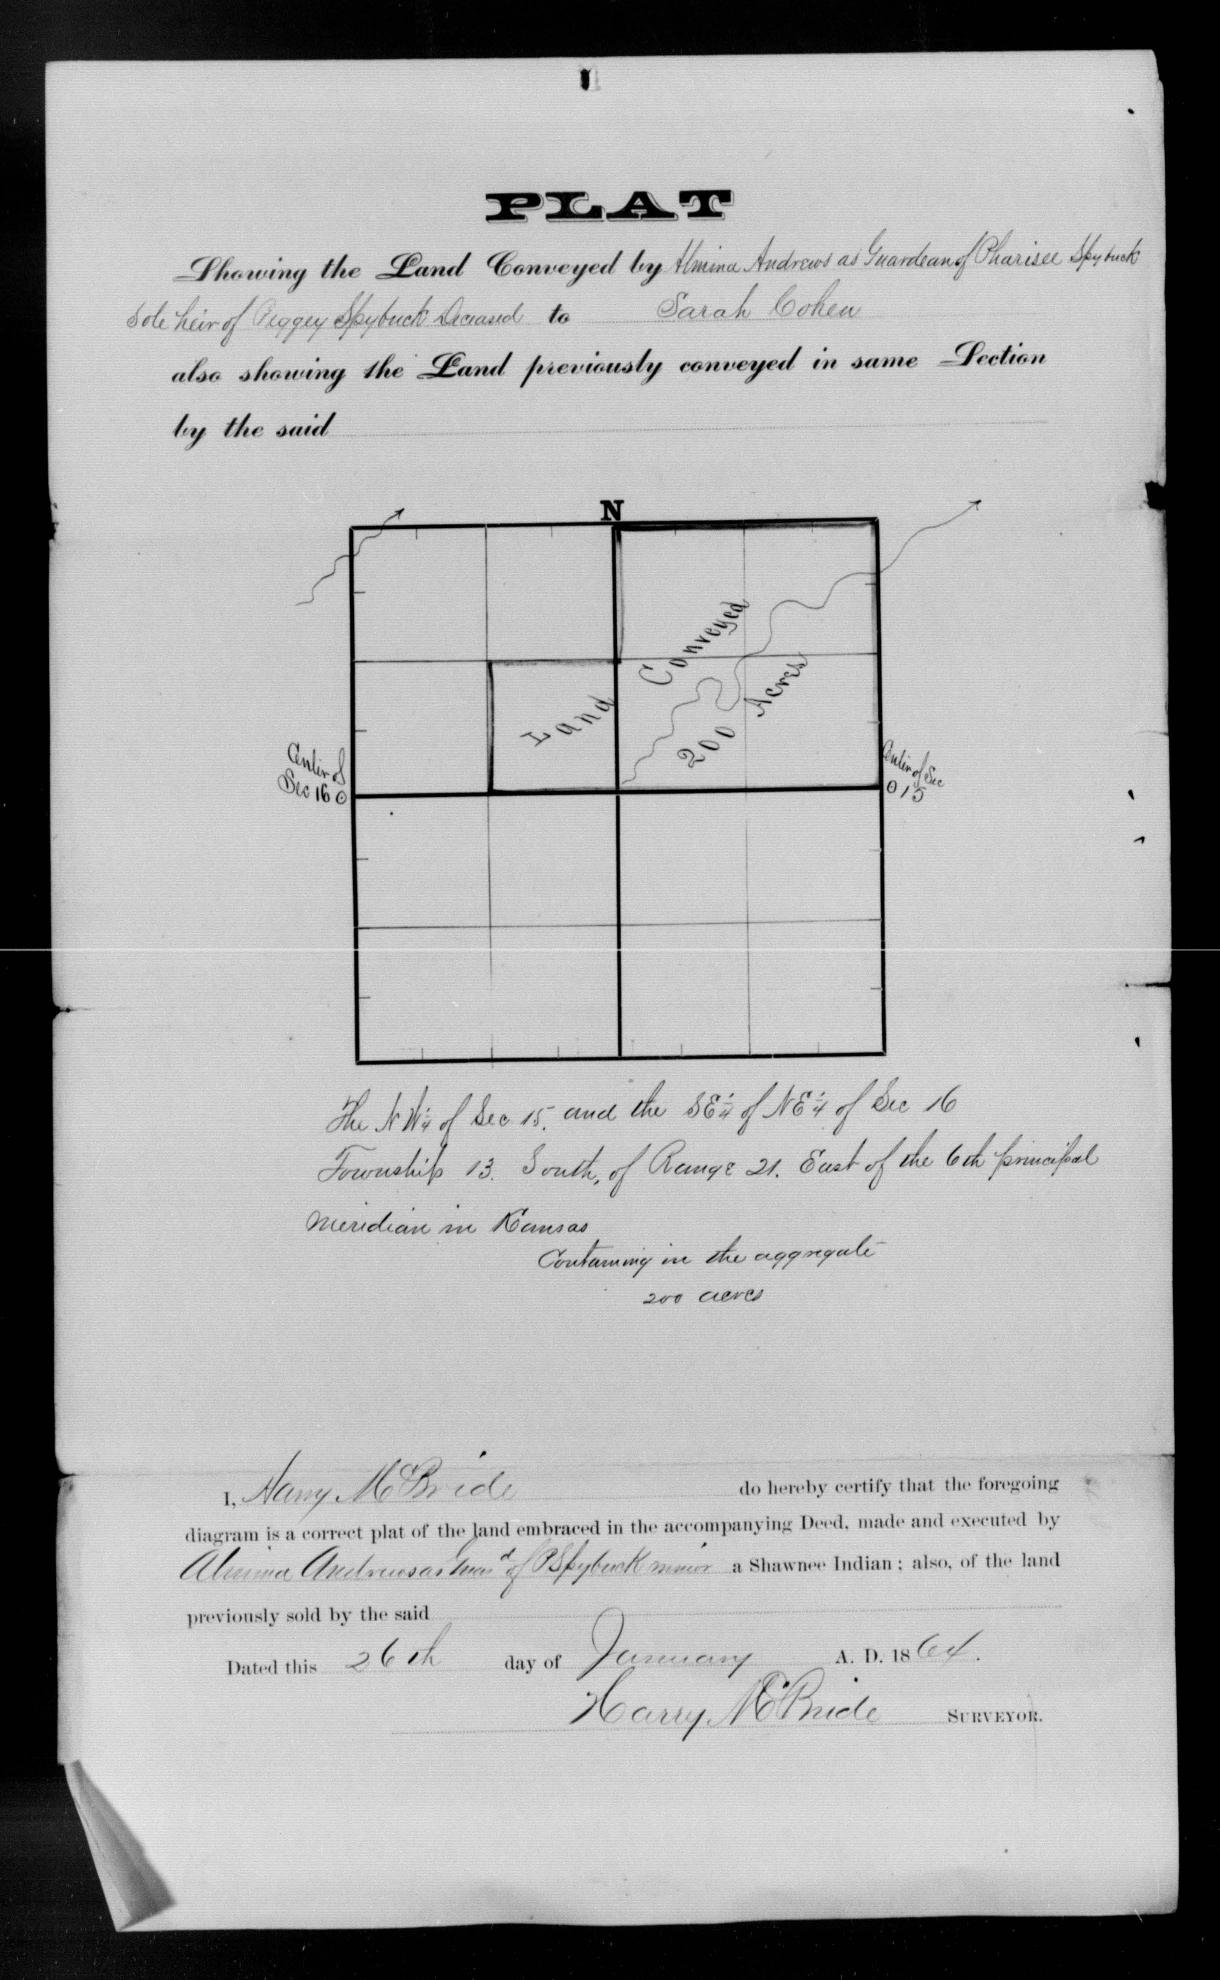 PLAT
Showing the Land Conveyed by Almina Andrews as Guardean of Pharisee Spybuck
Sole heir of Peggey Spybuck Deceased to Sarah Cohen
also showing the Land previously conveyed in same Section
by the said
N
Land Conveyed
200 Acres
Center of
Sec 16
Center of Sec
15
The NW 1/4 of Sec 15. and the SE 1/4 of NE 1/4 of Sec 16
Township 13. South, of Range 21. East of the 6th principal
Meridian in Kansas
Containing in the aggregate
200 acres
I, Harry McBride do hereby certify that the foregoing
diagram is a correct plat of the land embraced in the accompanying Deed, made and executed by
Almina Andrews as Guard of P Spybuck minor a Shawnee Indian; also, of the land
previously sold by the said
Dated this 26th day of January A. D. 1864.
Harry McBride SURVEYOR.